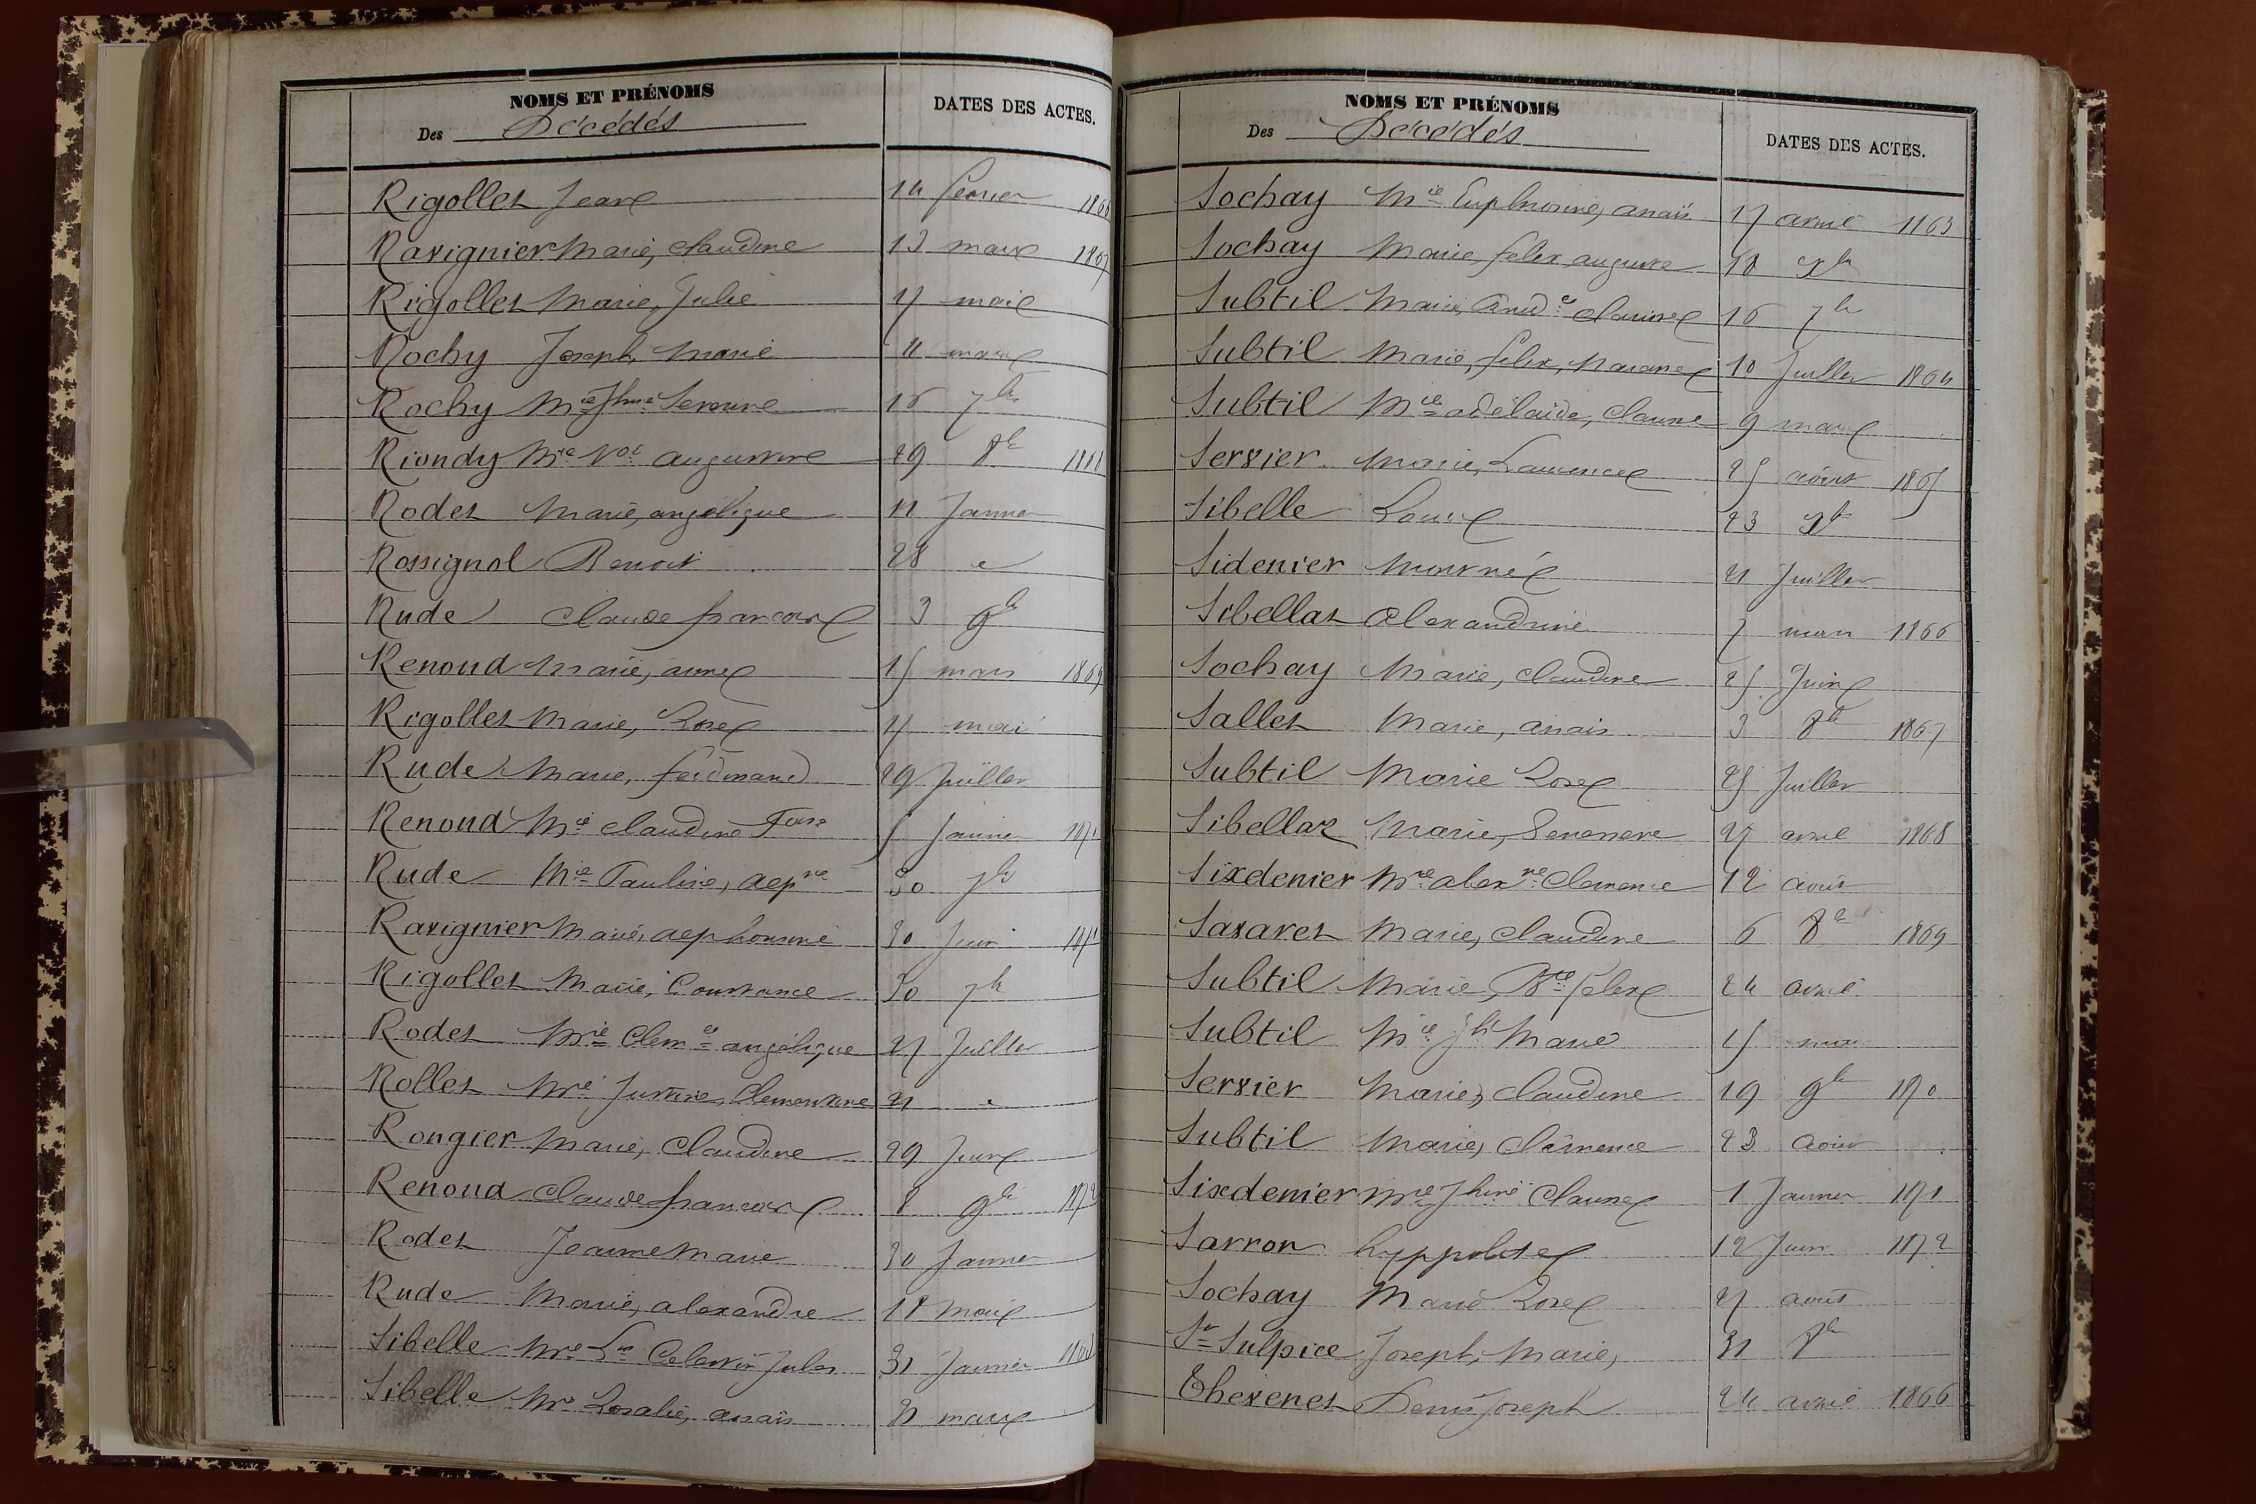 NOMS ET PRÉNOMS
Des Décédés
DATES DES ACTES.
Rigollet Jean 14 février 1866
Ravignier Marie, claudine 13 mars 1867
Rigollet Marie, Julie 17 mai
Rochy Joseph, Marie 11 mars
Rochy Mie Jhne 16 7bre
Riondy Mie augustine 29 8bre
Rodet Marie, angélique 11 Janvier
Rossignol Benoit 28
Rude Claude françois 3 9bre
Renoud Marie, anne 15 mars 1869
Rigollet Marie, Rose 17 mai
Rude Marie, ferdinand 29 Juillet
Renoud Mie claudine 5 Janvier
Rude Mie Pauline, 30 7bre
Ravignier Marie, 20 Juin
Rigollet Marie, Constance 30 7bre
Rodet Mie Clemce angélique 27 Juillet
Rollet Mie Justine, Clementine 21
Rougier Marie, Claudine 29 Juin
Renoud Claude françois 8 9bre 1872
Rodet Jeanne Marie 20 Janvier
Rude Marie, alexandre 18 Mai
Sibelle Mie Celestin Jules 31 Janvier
Sibelle Mie Rosalie, anaïs 21 mars
NOMS ET PRÉNOMS
Des Décédés
DATES DES ACTES.
Sochay Mie Euphrosine, anaïs 17 avril 1863
Sochay Marie, felix, auguste 18
Subtil Marie, Claudine 16 7bre
Subtil Marie, felix, 10 Juillet 1864
Subtil Mie adélaïde, 9 mars
Servier Marie, Laurence 25 août 1865
Sibelle Louis 23
Sidenier mort né 21 Juillet
Sibellas Alexandrine 7 mars 1866
Sochay Marie, claudine 25 Juin
Sallet Marie, anaïs 3 8bre 1867
Subtil Marie Rose 25 Juillet
Sibellas Marie, Genevieve 27 avril 1868
Sixdenier Mie alexne Clemence 12 août
Savaret Marie, Claudine 6 8bre 1869
Subtil Marie, Bte felix 24 avril
Subtil Mie Jh Marie 15 mai
Servier Marie, Claudine 19 9bre 1870
Subtil Marie, Clémence 23 août
Sixdenier Mie Jhine Claudine 1 Janvier 1871
Sarron hyppolite 12 Juin 1872
Sochay Marie Rose 27 août
St Sulpice Joseph, Marie, 31 8bre
Thevenet Denis Joseph 24 avril 1866